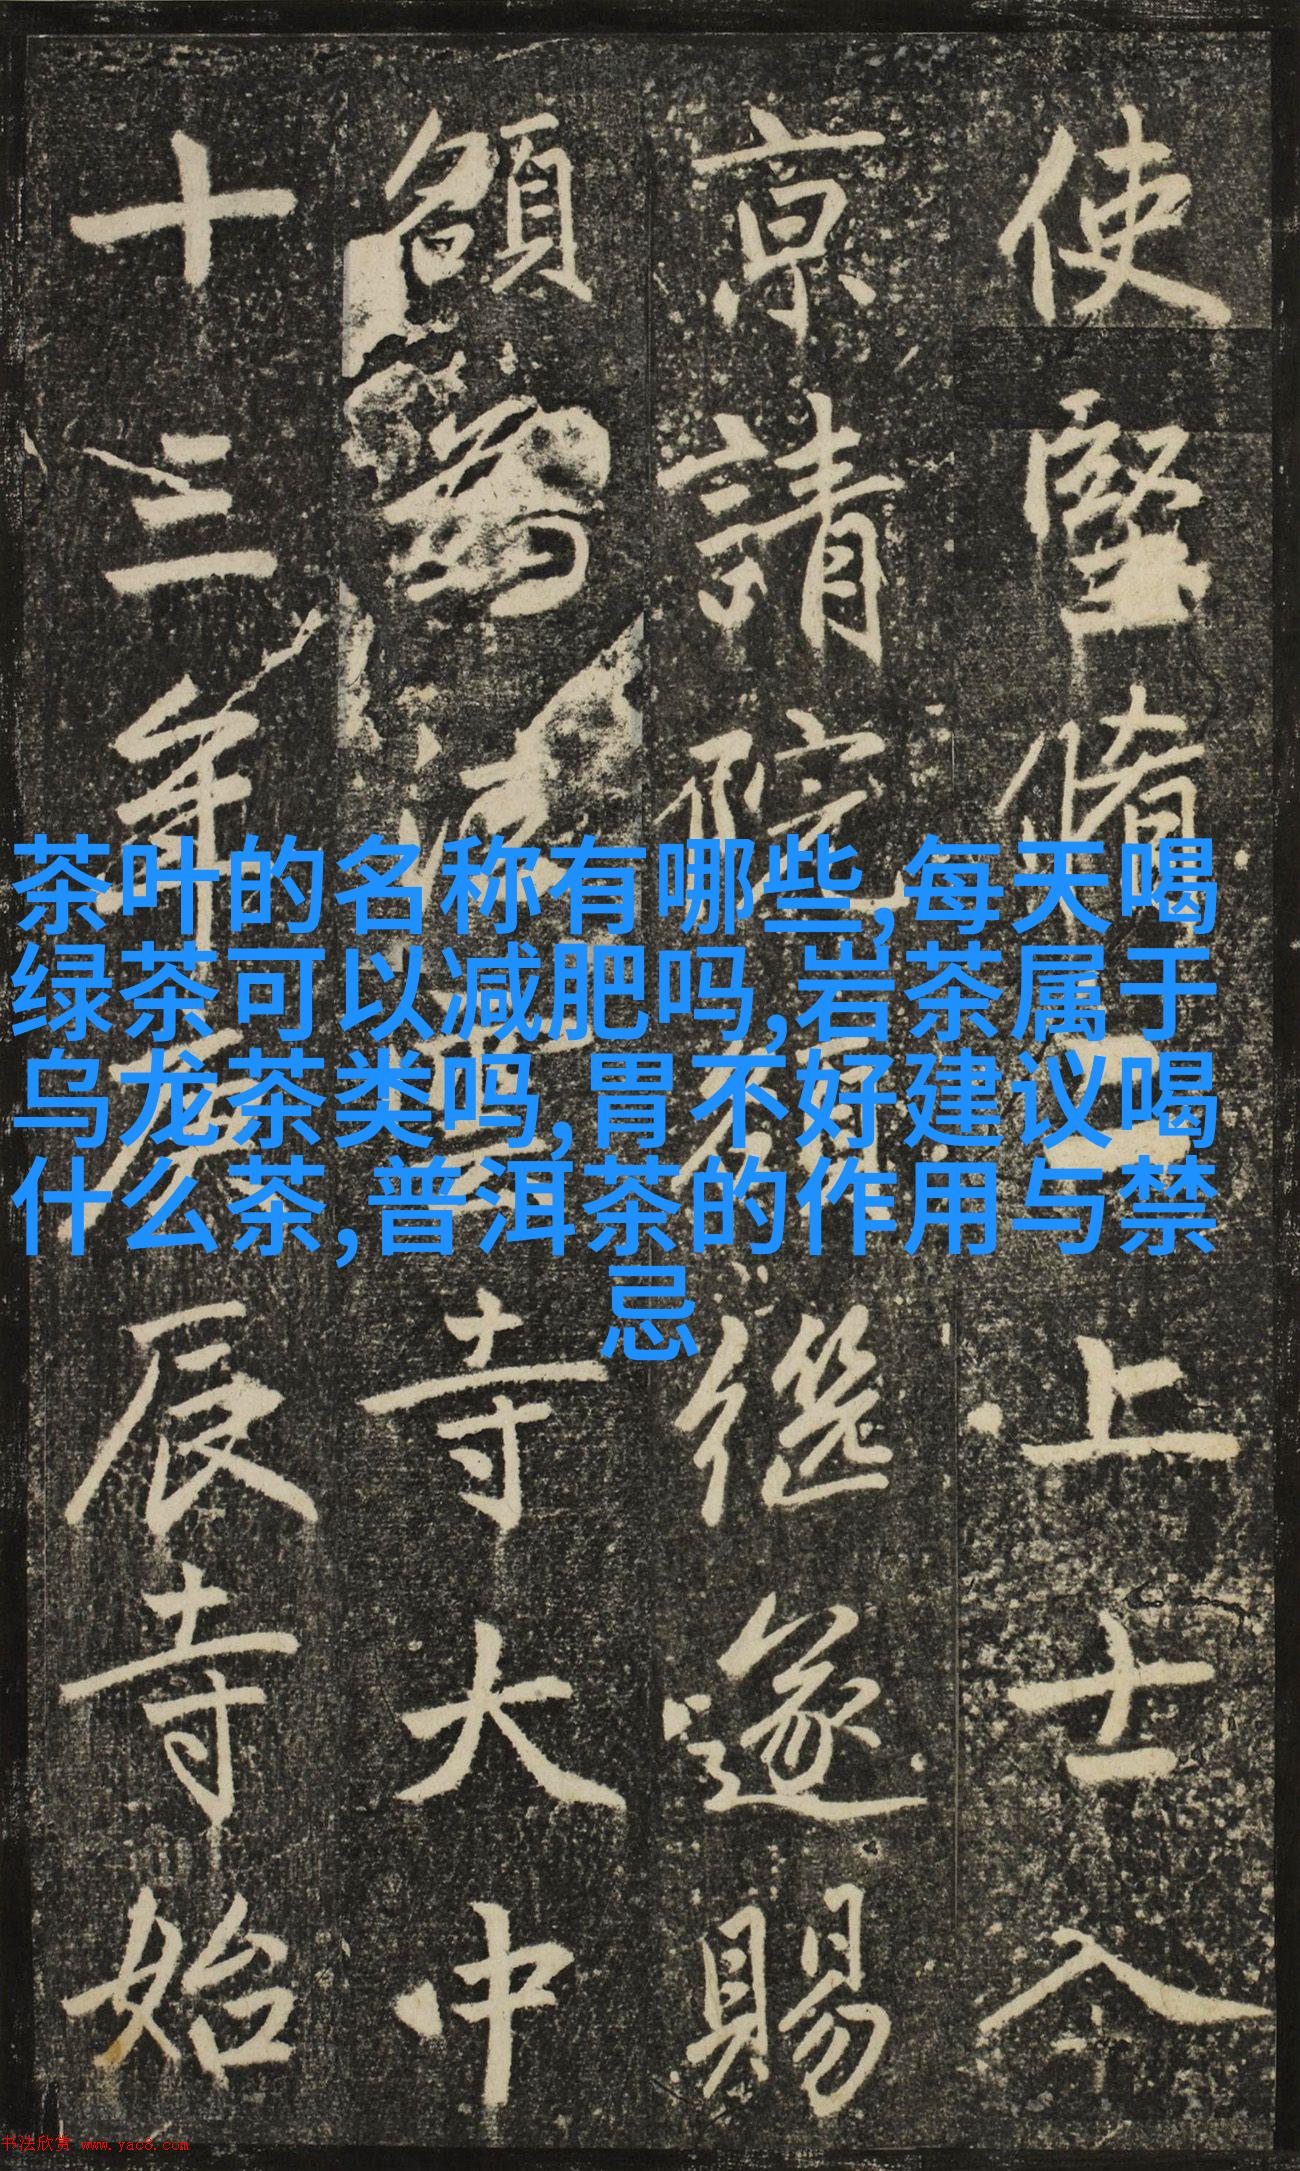 使堅上士入
京請院額繼遂賜
額為寺大中
十三年庚辰寺始
茶叶的名称有哪些,每天喝
绿茶可以减肥吗,岩茶属于
乌龙茶类吗,胃不好建议喝
什么茶,普洱茶的作用与禁
忌
书法欣赏 www.yac8.com